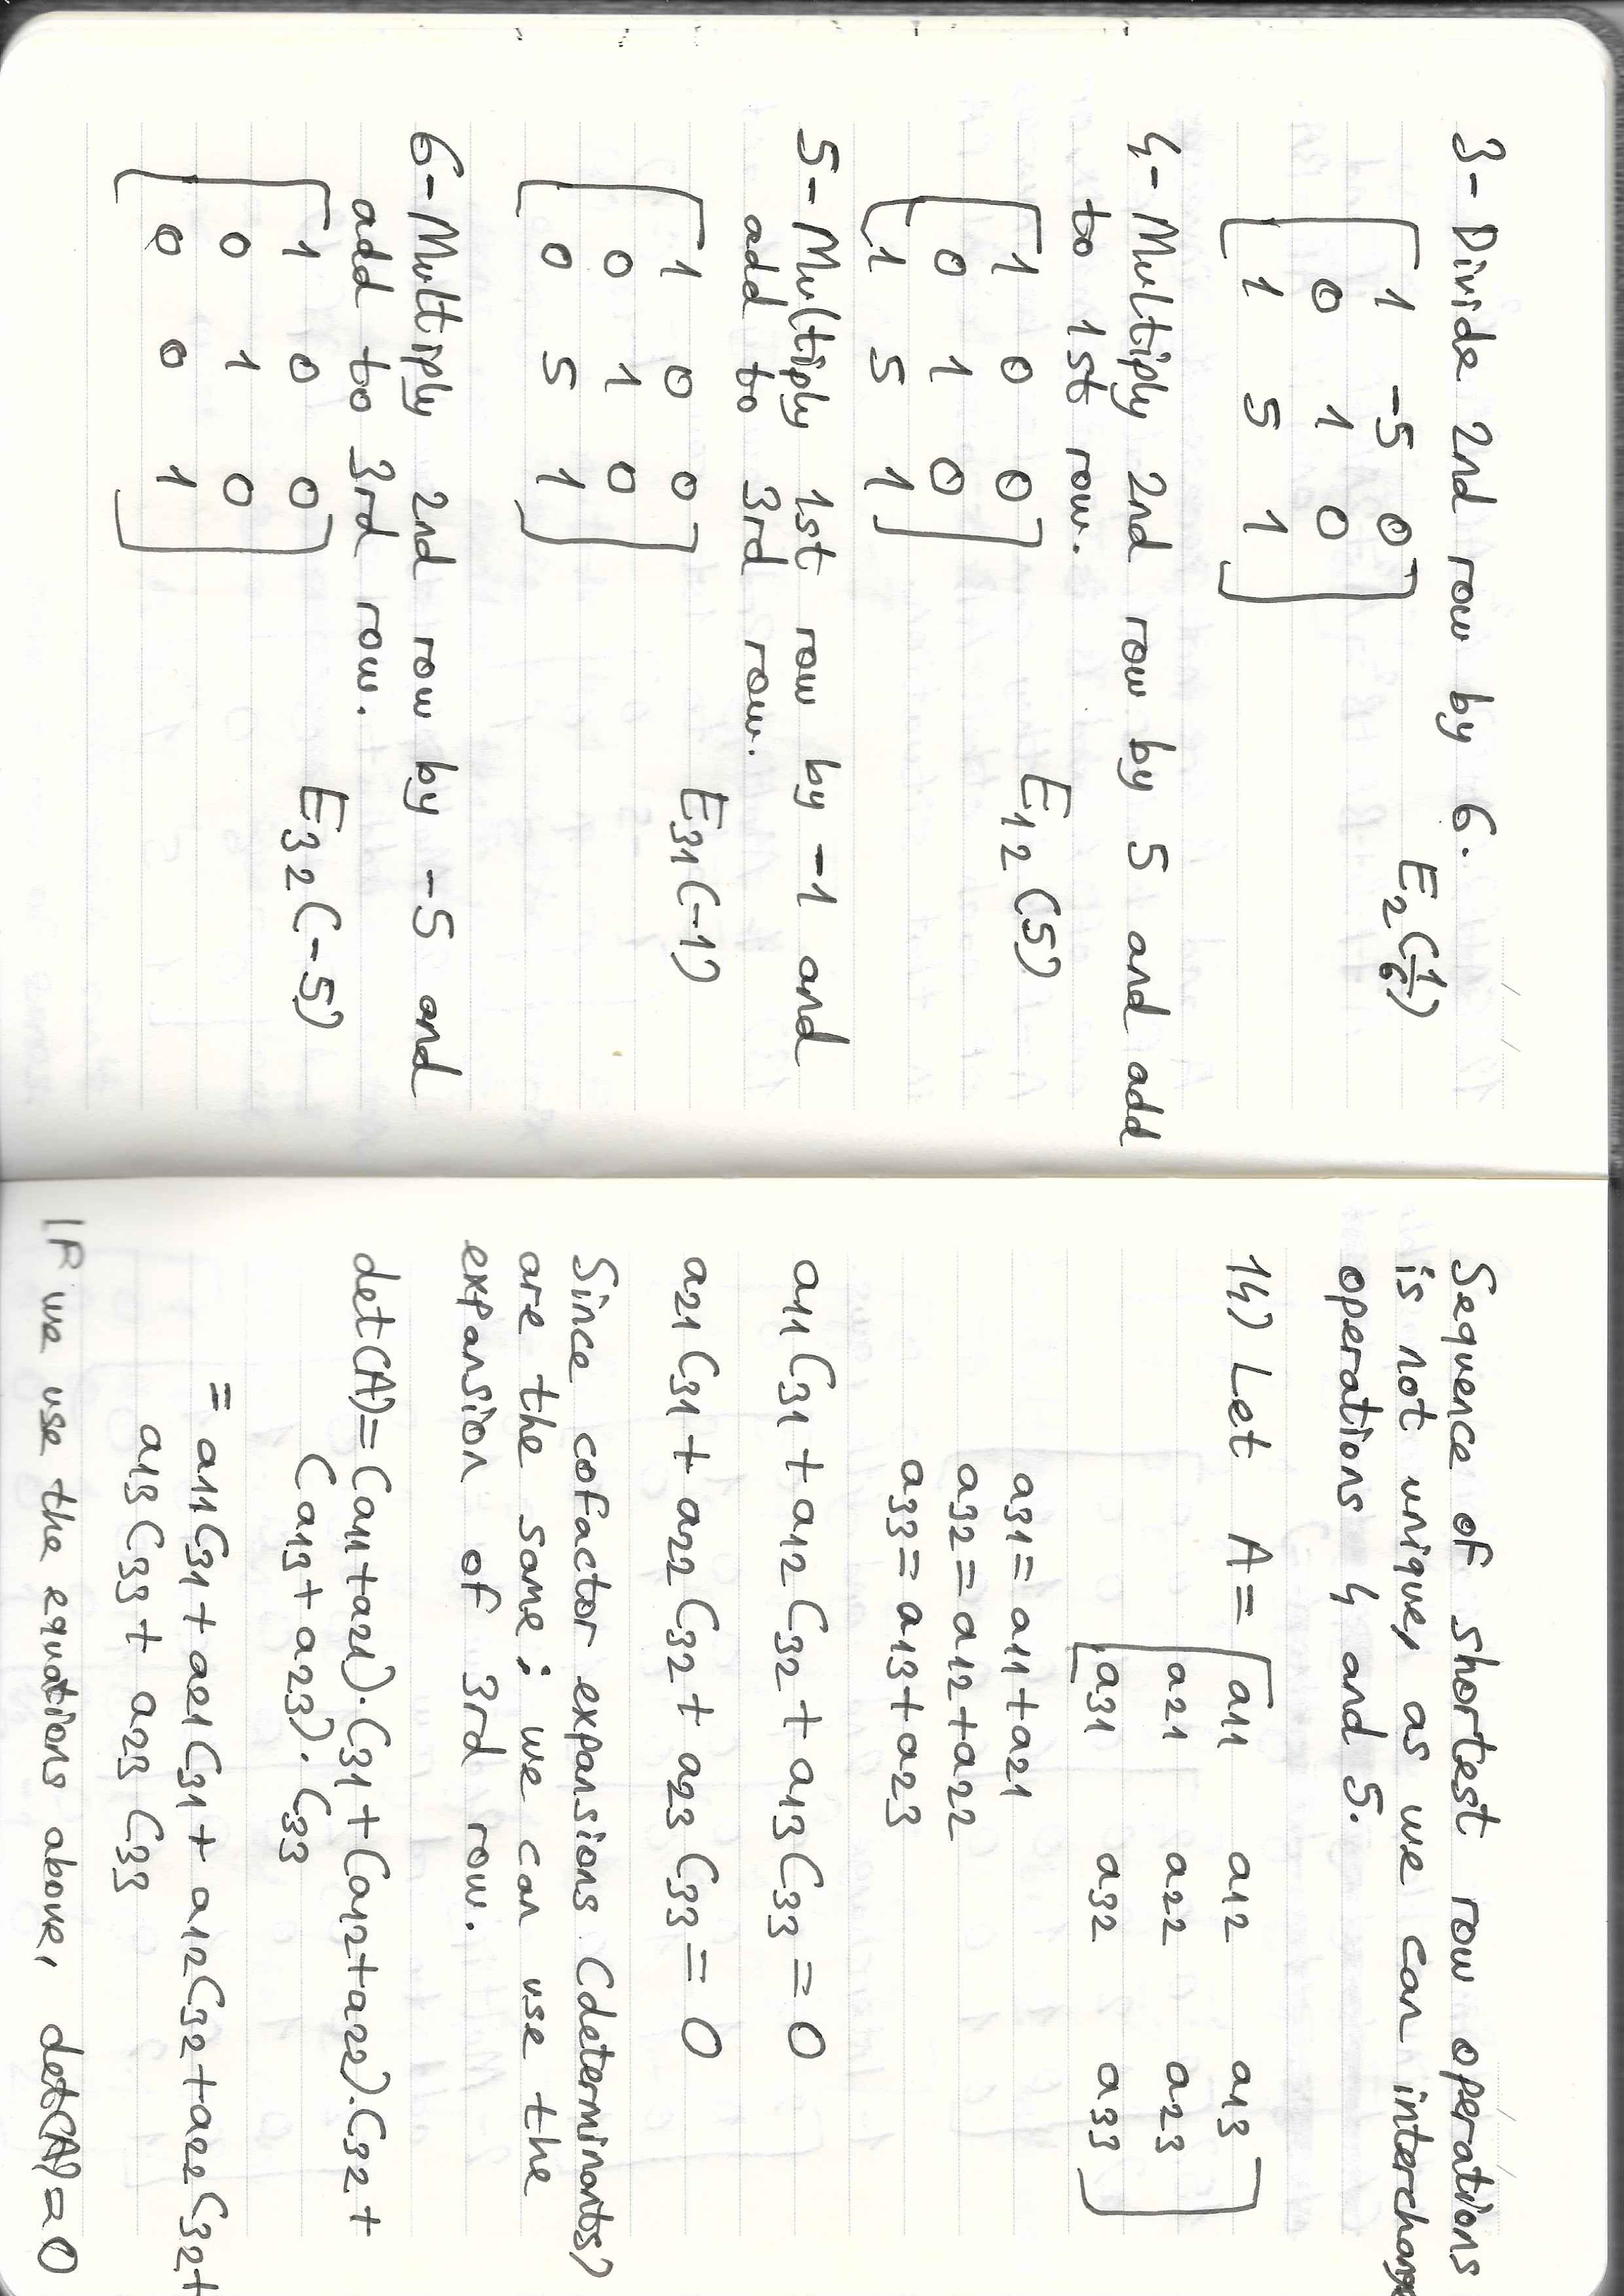 3- Divide 2nd row by 6.
E2(1/6)
1 -5 0
0 1 0
1 5 1
4- Multiply 2nd row by 5 and add
to 1st row.
E12(5)
1 0 0
0 1 0
1 5 1
5- Multiply 1st row by -1 and
add to 3rd row.
E31(-1)
1 0 0
0 1 0
0 5 1
6- Multiply 2nd row by -5 and
add to 3rd row.
E32(-5)
1 0 0
0 1 0
0 0 1
Sequence of shortest row operations
is not unique, as we can interchange
operations 4 and 5.
14) Let A = a11 a12 a13
a21 a22 a23
a31 a32 a33
a31 = a11+a21
a32 = a12+a22
a33 = a13+a23
a11 C31 + a12 C32 + a13 C33 = 0
a21 C31 + a22 C32 + a23 C33 = 0
Since cofactor expansions (determinants)
are the same; we can use the
expansion of 3rd row.
det(A) = (a11+a21).C31 + (a12+a22).C32 +
(a13+a23).C33
= a11C31 + a21C31 + a12C32 + a22C32 +
a13C33 + a23 C33
If we use the equations above, det(A)=0